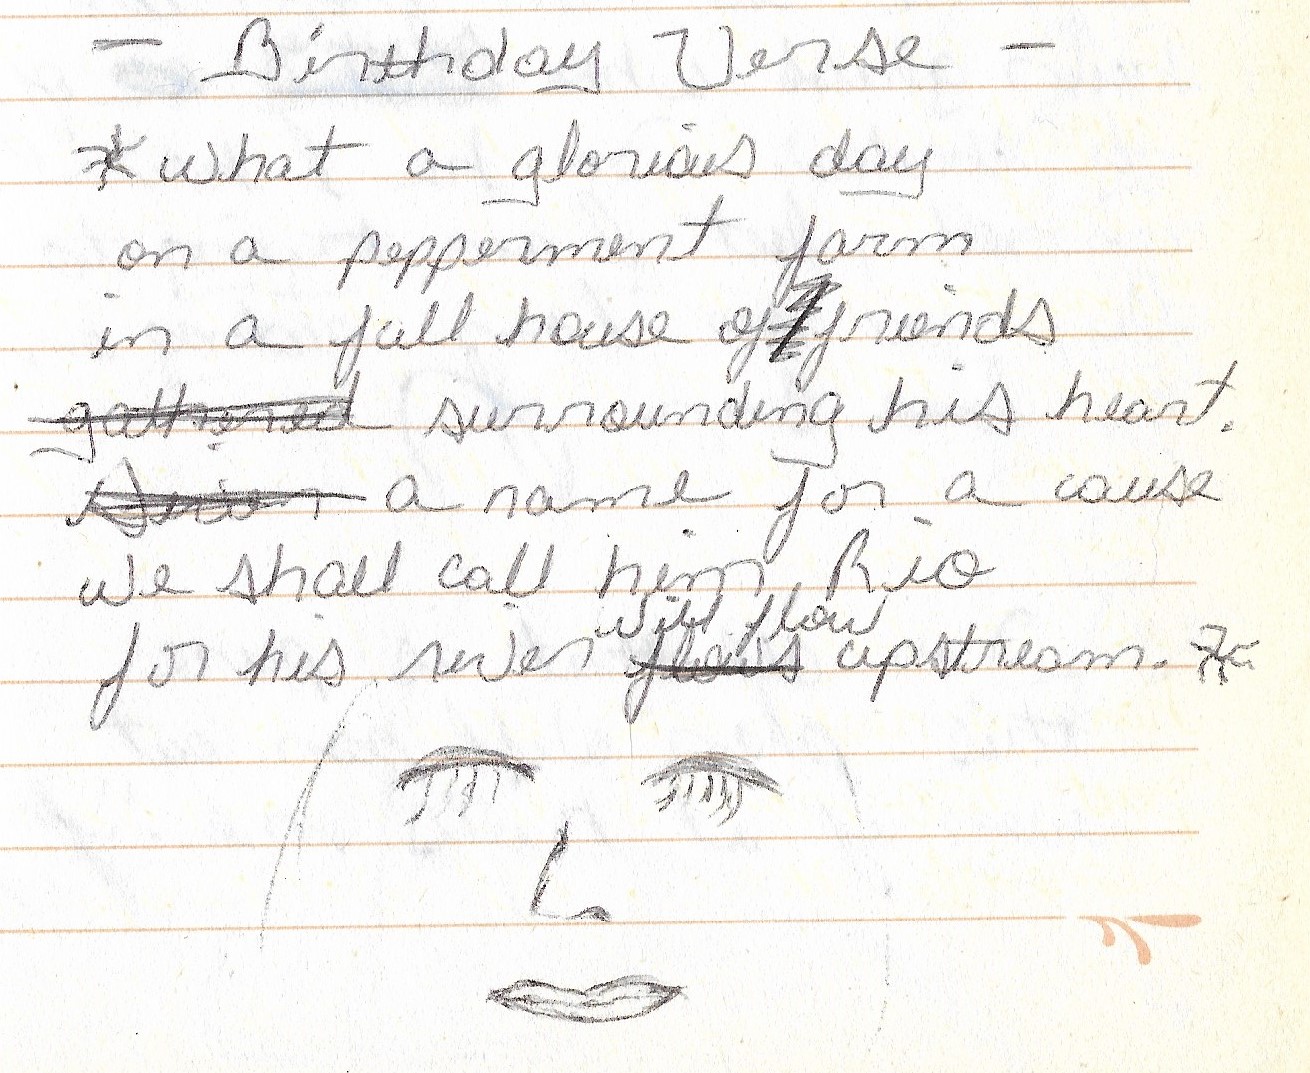 - Birthday Verse -
* what a glorious day
on a pepperment farm
in a full house of friends
gathered surrounding his heart.
a name for a cause
we shall call him, Rio
will flow
for his river flows upstream. *